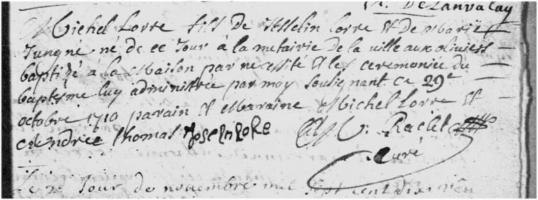 De Lanvalay
Michel Lorre fils de Josselin Lorre et de Marie
né de ce Jour à la metairie de la ville aux oliviers
baptizé à la Maison par nécessité et les ceremonies du
baptesme luy administrée par moy soubsignant ce 29e
octobre 1710 parain et Maraine Michel Lorre et
Thomas Josseln Lorre Raclet
Curé
le Jour de novembre mil sept cent dix